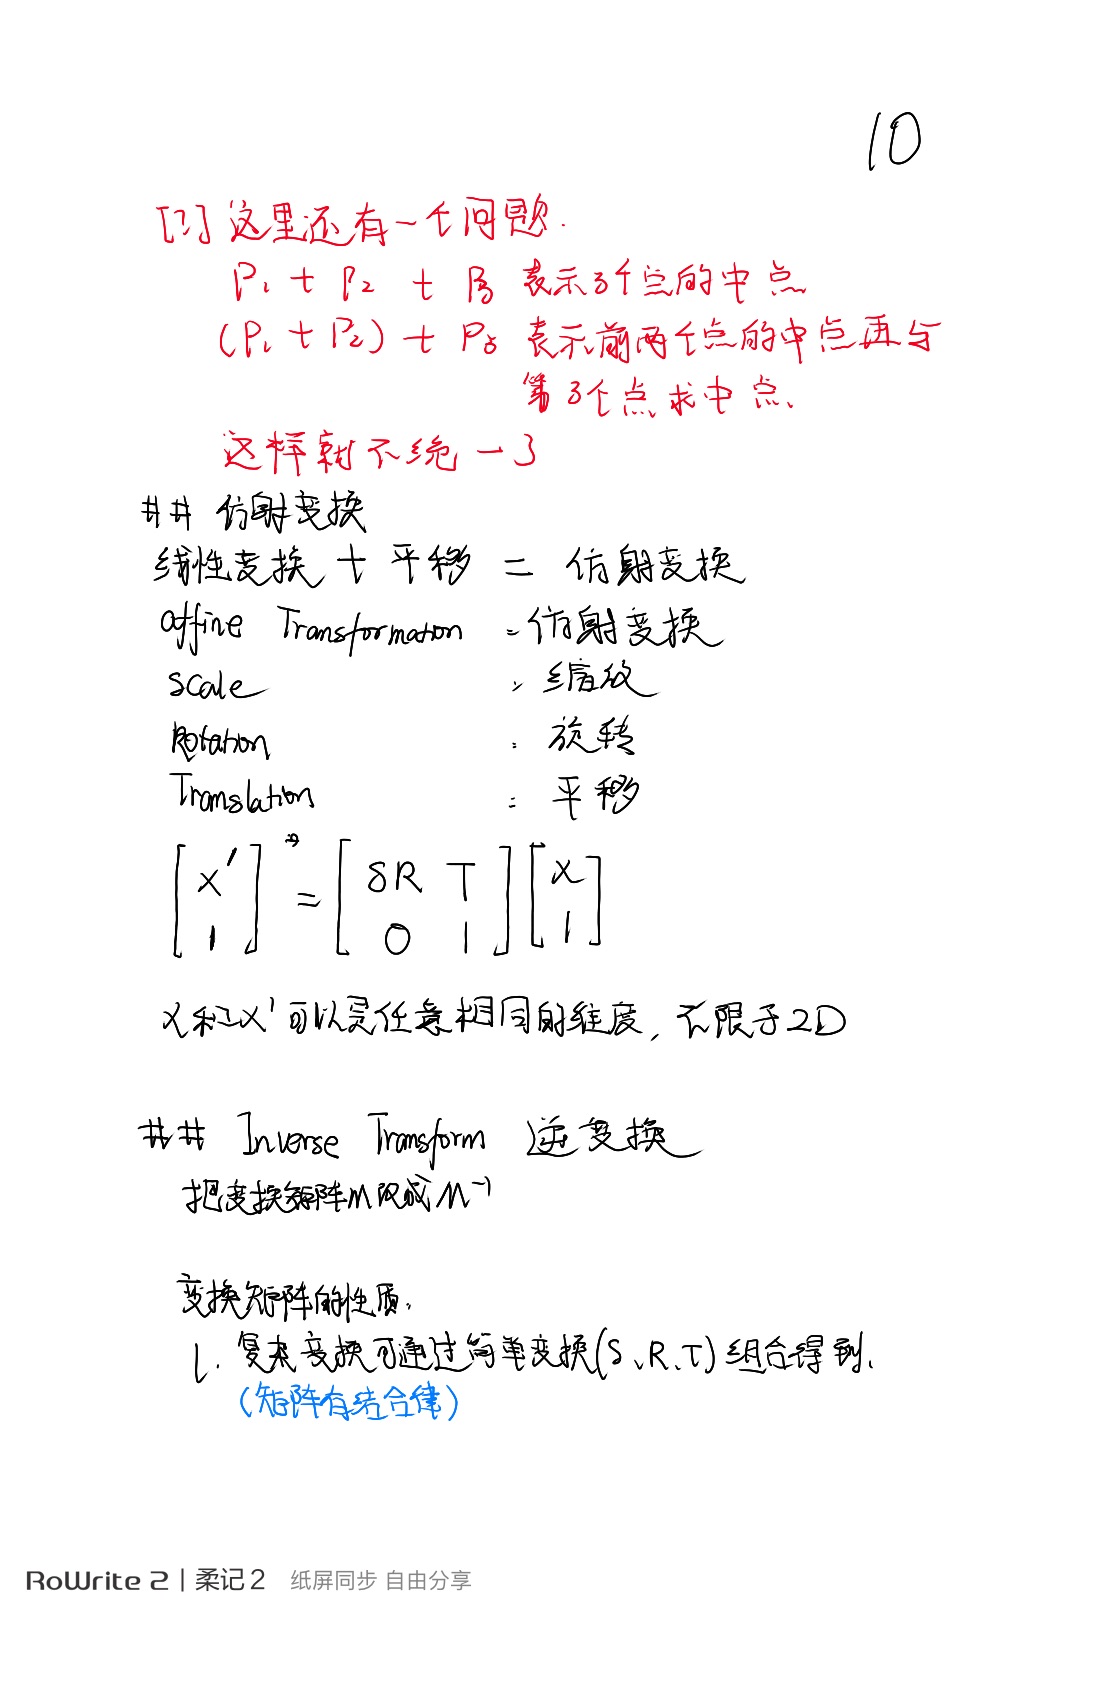 10
[?] 这里还有一个问题.
P₁ + P₂ + P₃ 表示3个点的中点
(P₁ + P₂) + P₃ 表示前两个点的中点再与
第3个点求中点、
这样就不统一了
## 仿射变换
线性变换 + 平移 = 仿射变换
affine Transformation : 仿射变换
Scale : 缩放
Rotation : 旋转
Translation : 平移
[X' 1] = [SR T 0 1] [X 1]
X和X'可以是任意相同的维度, 不限于2D
## Inverse Transform 逆变换
把变换矩阵M改成M⁻¹
变换矩阵的性质:
1. 复杂变换可通过简单变换(S、R、T)组合得到、
(矩阵有结合律)
RoWrite 2 | 柔记 2 纸屏同步 自由分享